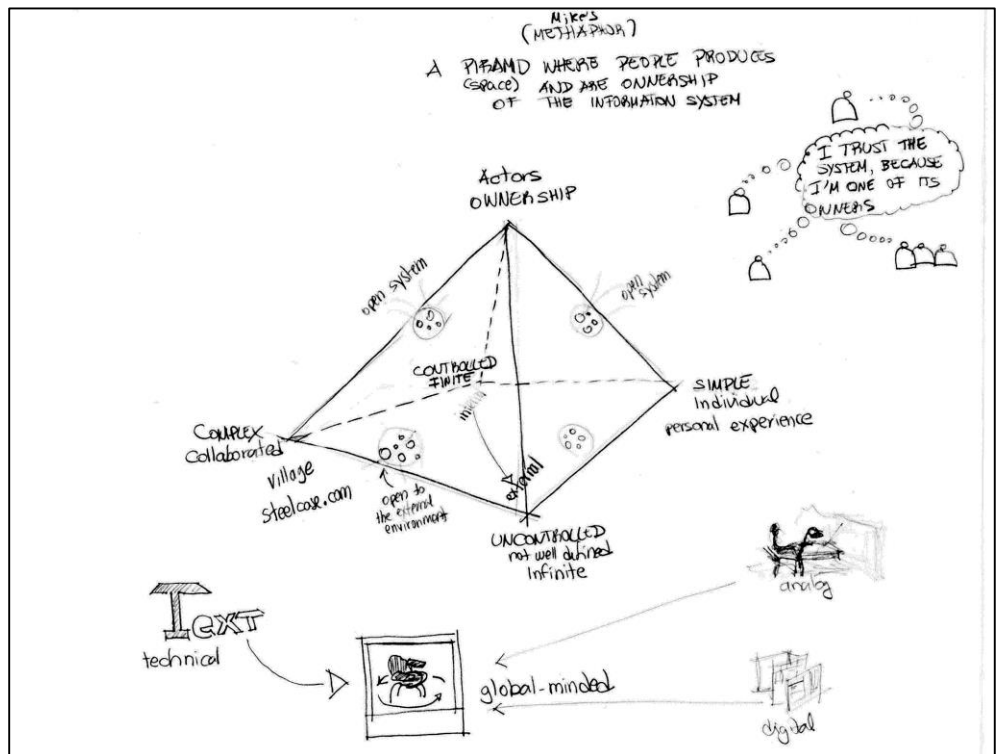 Mike's
(METHAPHOR)
A PIRAMD WHERE PEOPLE PRODUCES
(space) AND ARE ONNERSHIP
OF THE INFORMATION SYSTEM
I TRUST THE
SYSTEM, BECAUSE
I'M ONE OF ITS
ONNERS
Actors
OWNERSHIP
open system
open
system
CONTROLLED
FINITE
SIMPLE
Individual
personal experience
COMPLEX
Collaborated
village
steelcase.com
open to
the external
environment
external
UNCONTROLLED
not well defined
Infinite
Text
technical
global-minded
analog
digital